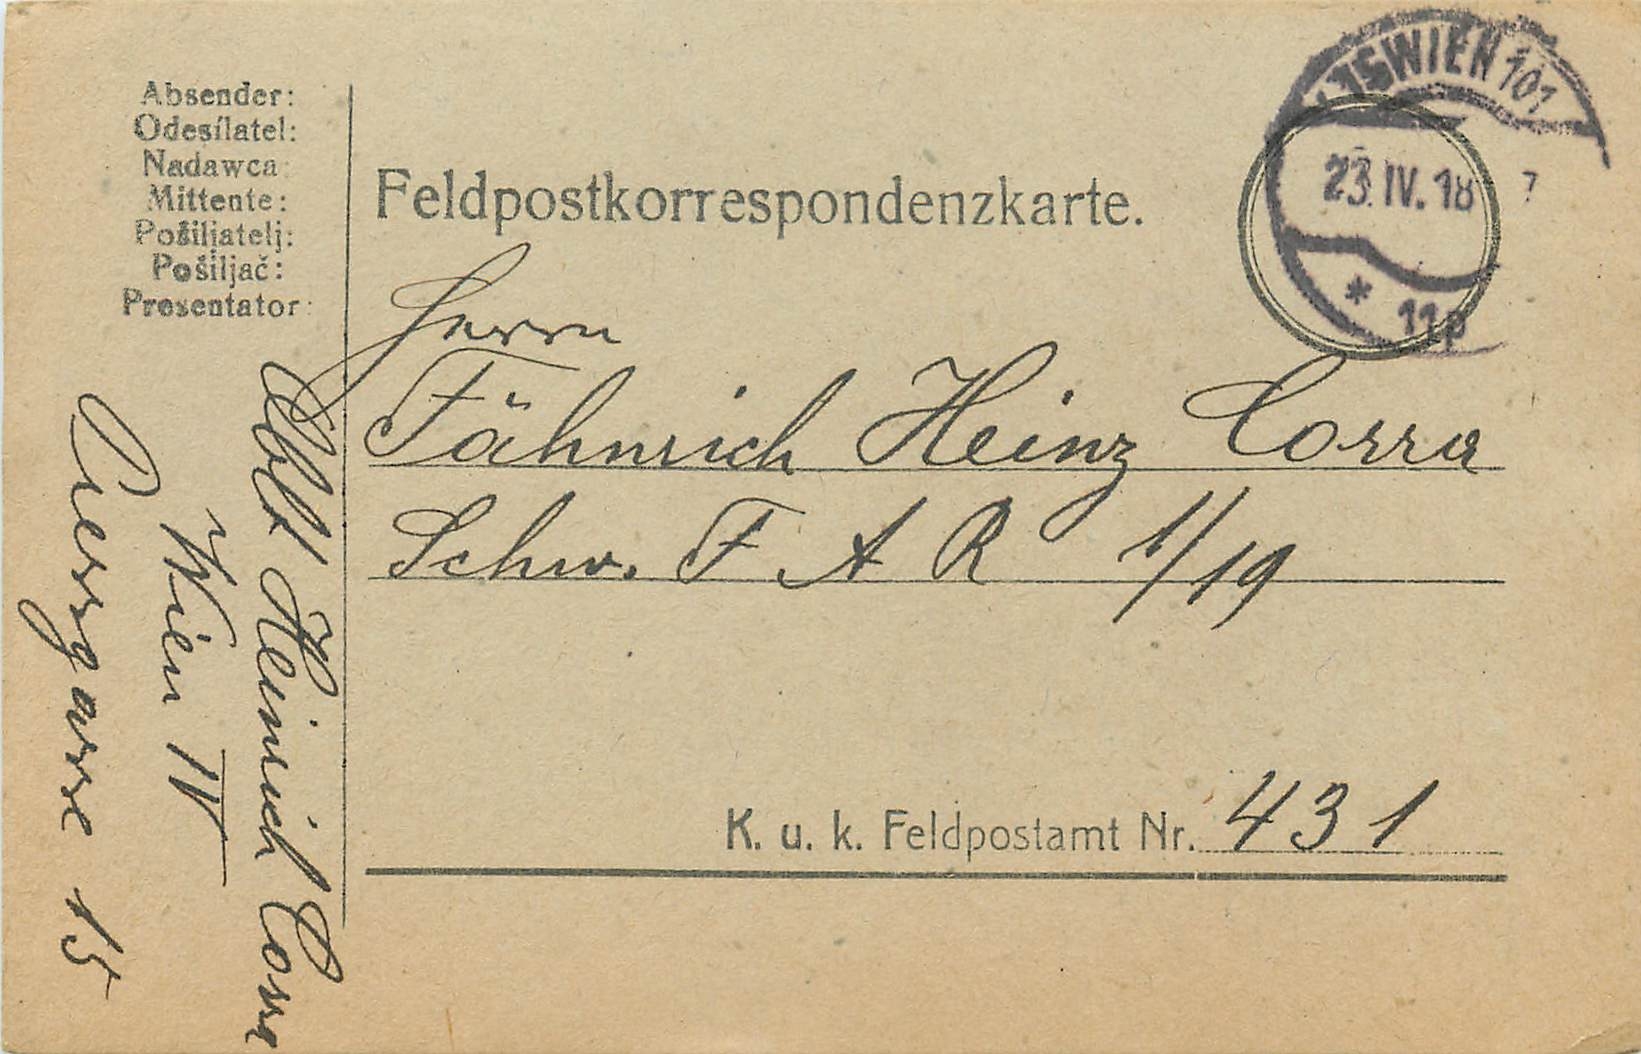 Absender:
Odesílatel:
Nadawca:
Mittente:
Pošiljatelj:
Pošiljač:
Presentator:
Feldpostkorrespondenzkarte.
WIEN 101
23.IV.18 7
* 11p
Herrn
Fähnrich Heinz Corra
Schw. F A R 1/19
K. u. k. Feldpostamt Nr. 431
Heinrich Corra
Wien IV
15